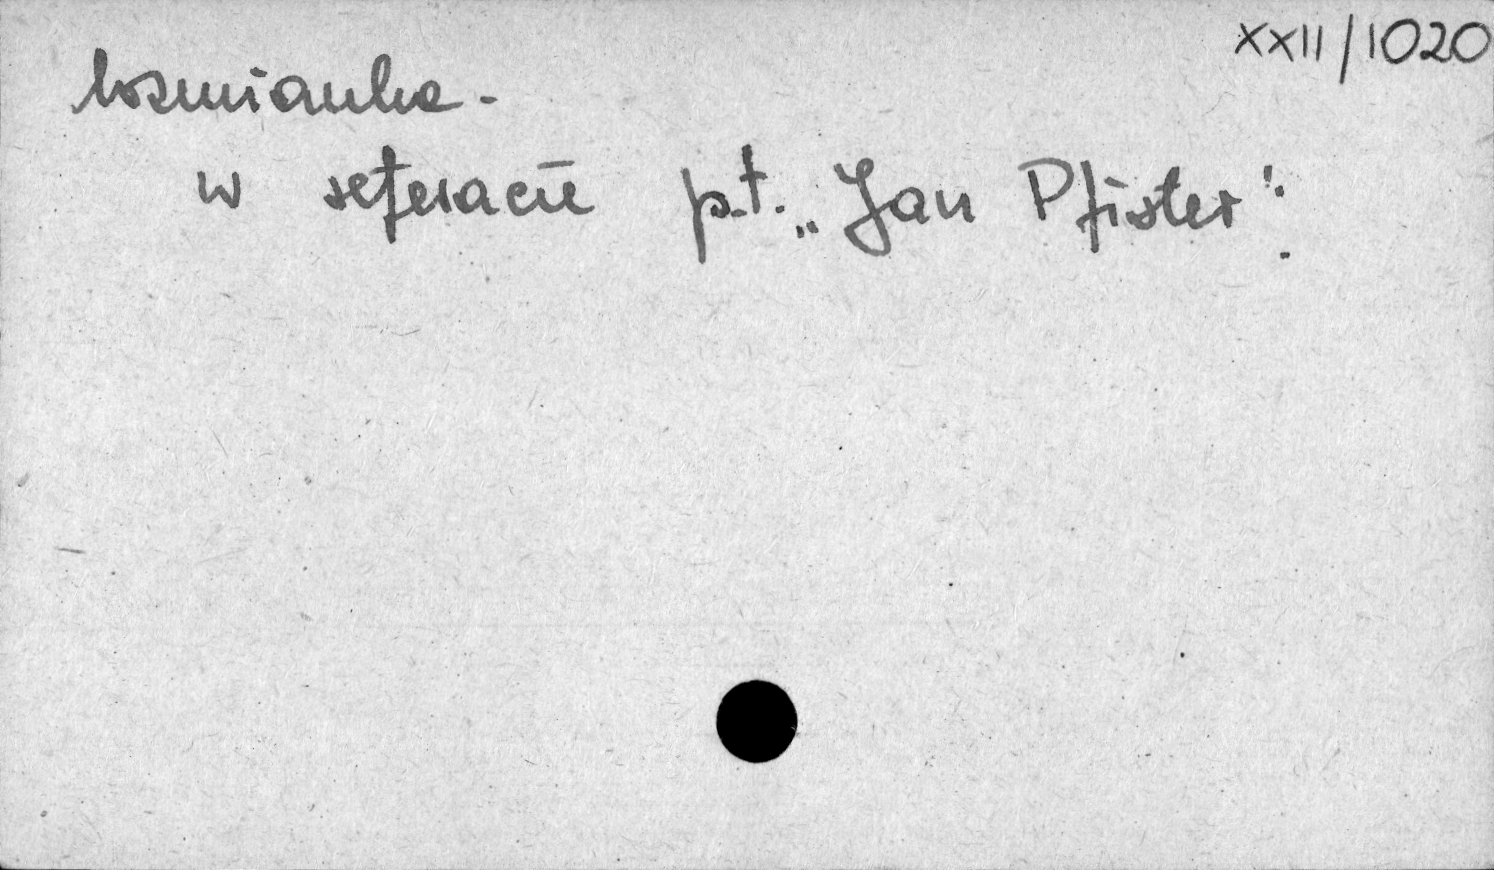 XXII/1020
wzmianka.
w referacie p.t. „Jan Pfister".